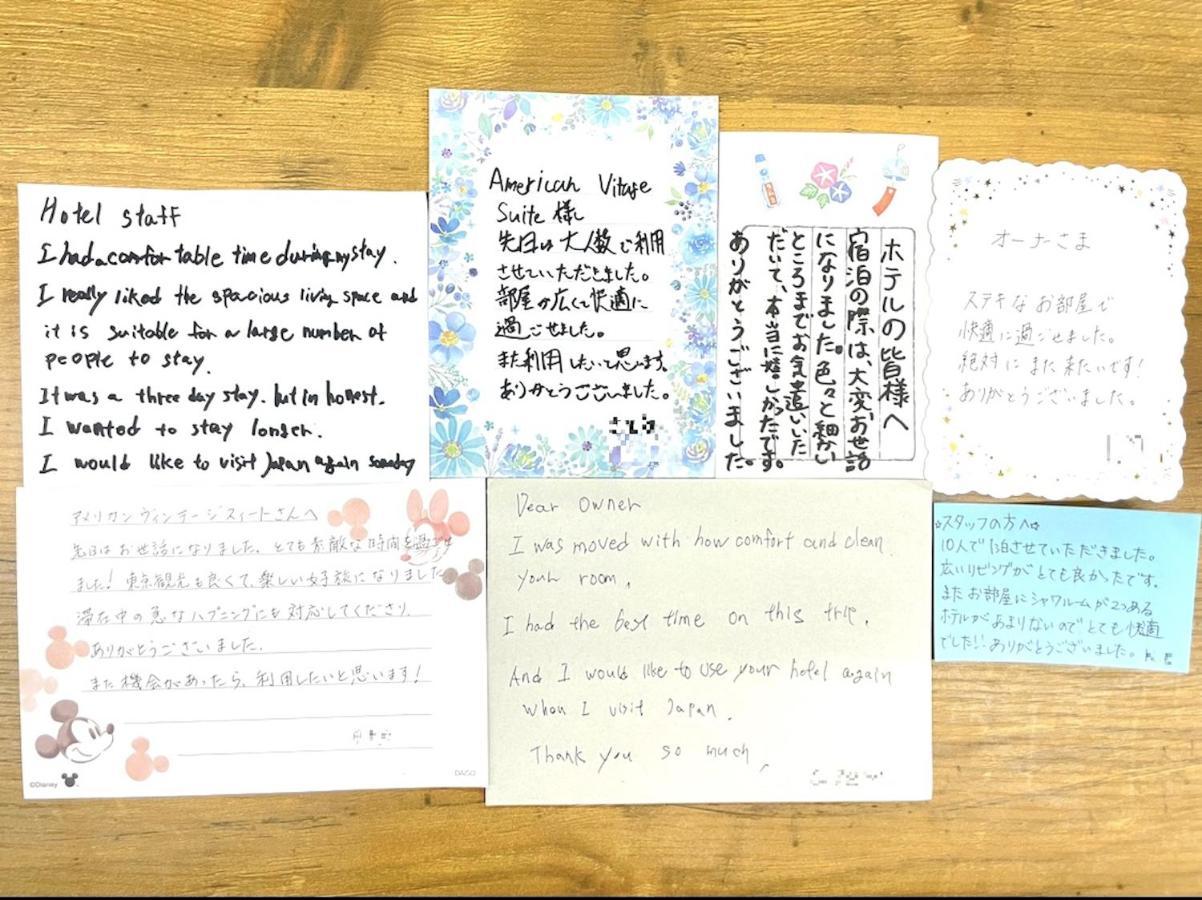 Hotel staff
I had a comfortable time during my stay.
I really liked the spacious living space and
it is suitable for a large number of
people to stay.
It was a three day stay. but in honest.
I wanted to stay longer.
I would like to visit Japan again someday
American Vitage
Suite 様
先日は大人数で利用
させていただきました。
部屋が広くて快適に
過ごせました。
また利用したいと思います。
ありがとうございました。
ホテルの皆様へ
宿泊の際は、大変お世話
になりました。色々と細かい
ところまでお気遣いいた
だいて、本当に嬉しかったです。
ありがとうございました。
オーナーさま
ステキなお部屋で
快適に過ごせました。
絶対にまた来たいです!
ありがとうございました。
アメリカンヴィンテージスィートさんへ
先日はお世話になりました。とても素敵な時間を過ごせ
ました! 東京観光も良くて、楽しい女子旅になりました
滞在中の急なハプニングにも対応してくださり、
ありがとうございました。
また機会があったら、利用したいと思います!
©Disney
DAISO
Dear Owner
I was moved with how comfort and clean
your room.
I had the best time on this trip.
And I would like to use your hotel again
when I visit Japan.
Thank you so much,
☆スタッフの方へ☆
10人で1泊させていただきました。
広いリビングがとても良かったです。
またお部屋にシャワルームが2つある
ホテルがあまりないのでとても快適
でした!! ありがとうございました。